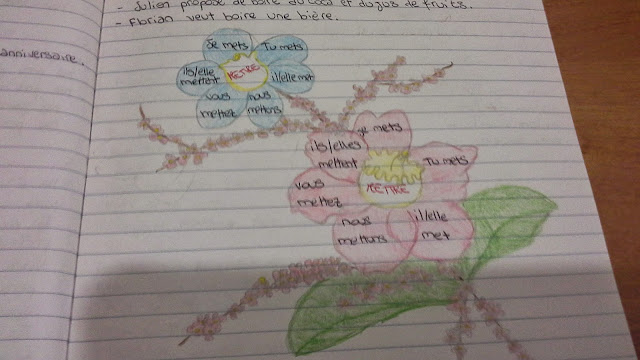 - Julien propose de boire du coca et du jus de fruits.
- Florian veut boire une bière.
anniversaire.
Je mets
Tu mets
il/elle met
nous
mettons
vous
mettez
ils/elle
mettent
METTRE
je mets
Tu mets
il/elle
met
nous
mettons
vous
mettez
ils/elles
mettent
METTRE